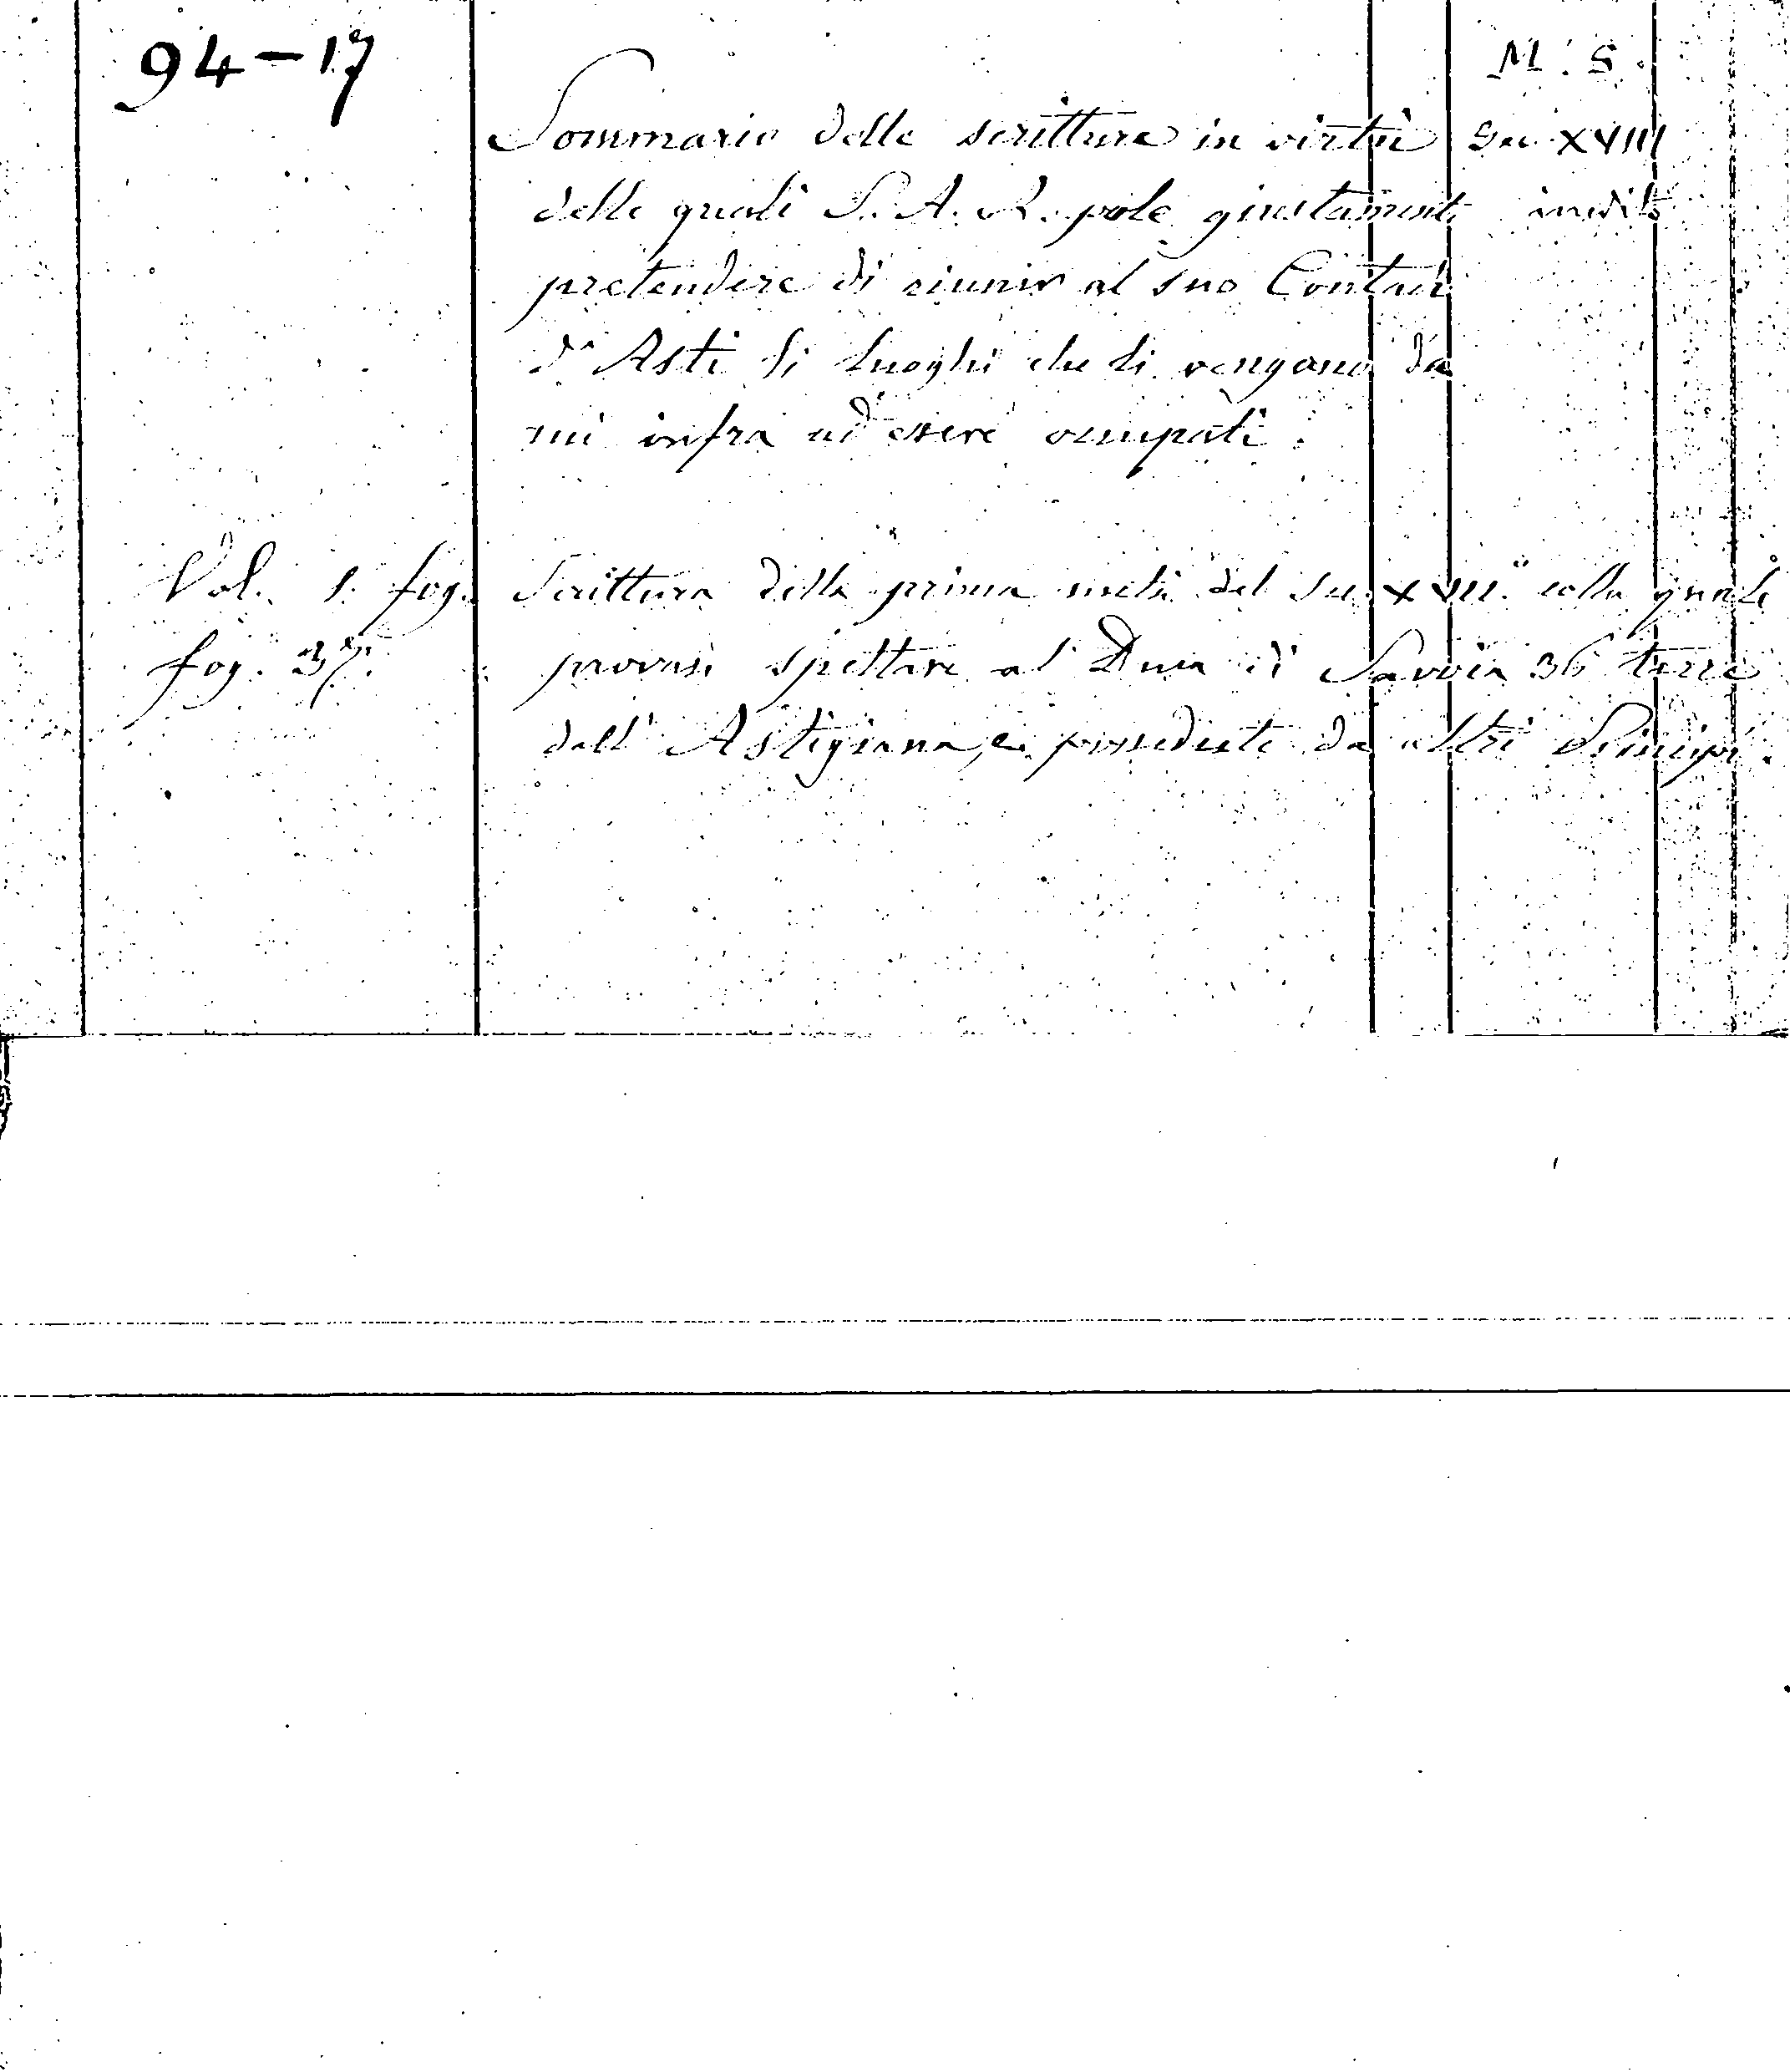 94-17
M. S.
Sommario delle scritture in virtù Sec. XVIII
delle quali S. A. R. pole giustamente inedito
pretendere di riunir al suo Contado
d'Asti li Luoghi che li vengano da
infra ad essere occupati.
Vol. 1. fog. Scrittura della prima metà del Sec. XVII. colla quale
fog. 37. provasi spettare al Duca di Savoia 36 terre
dell' Astigiana, e possedute da altri Principi.